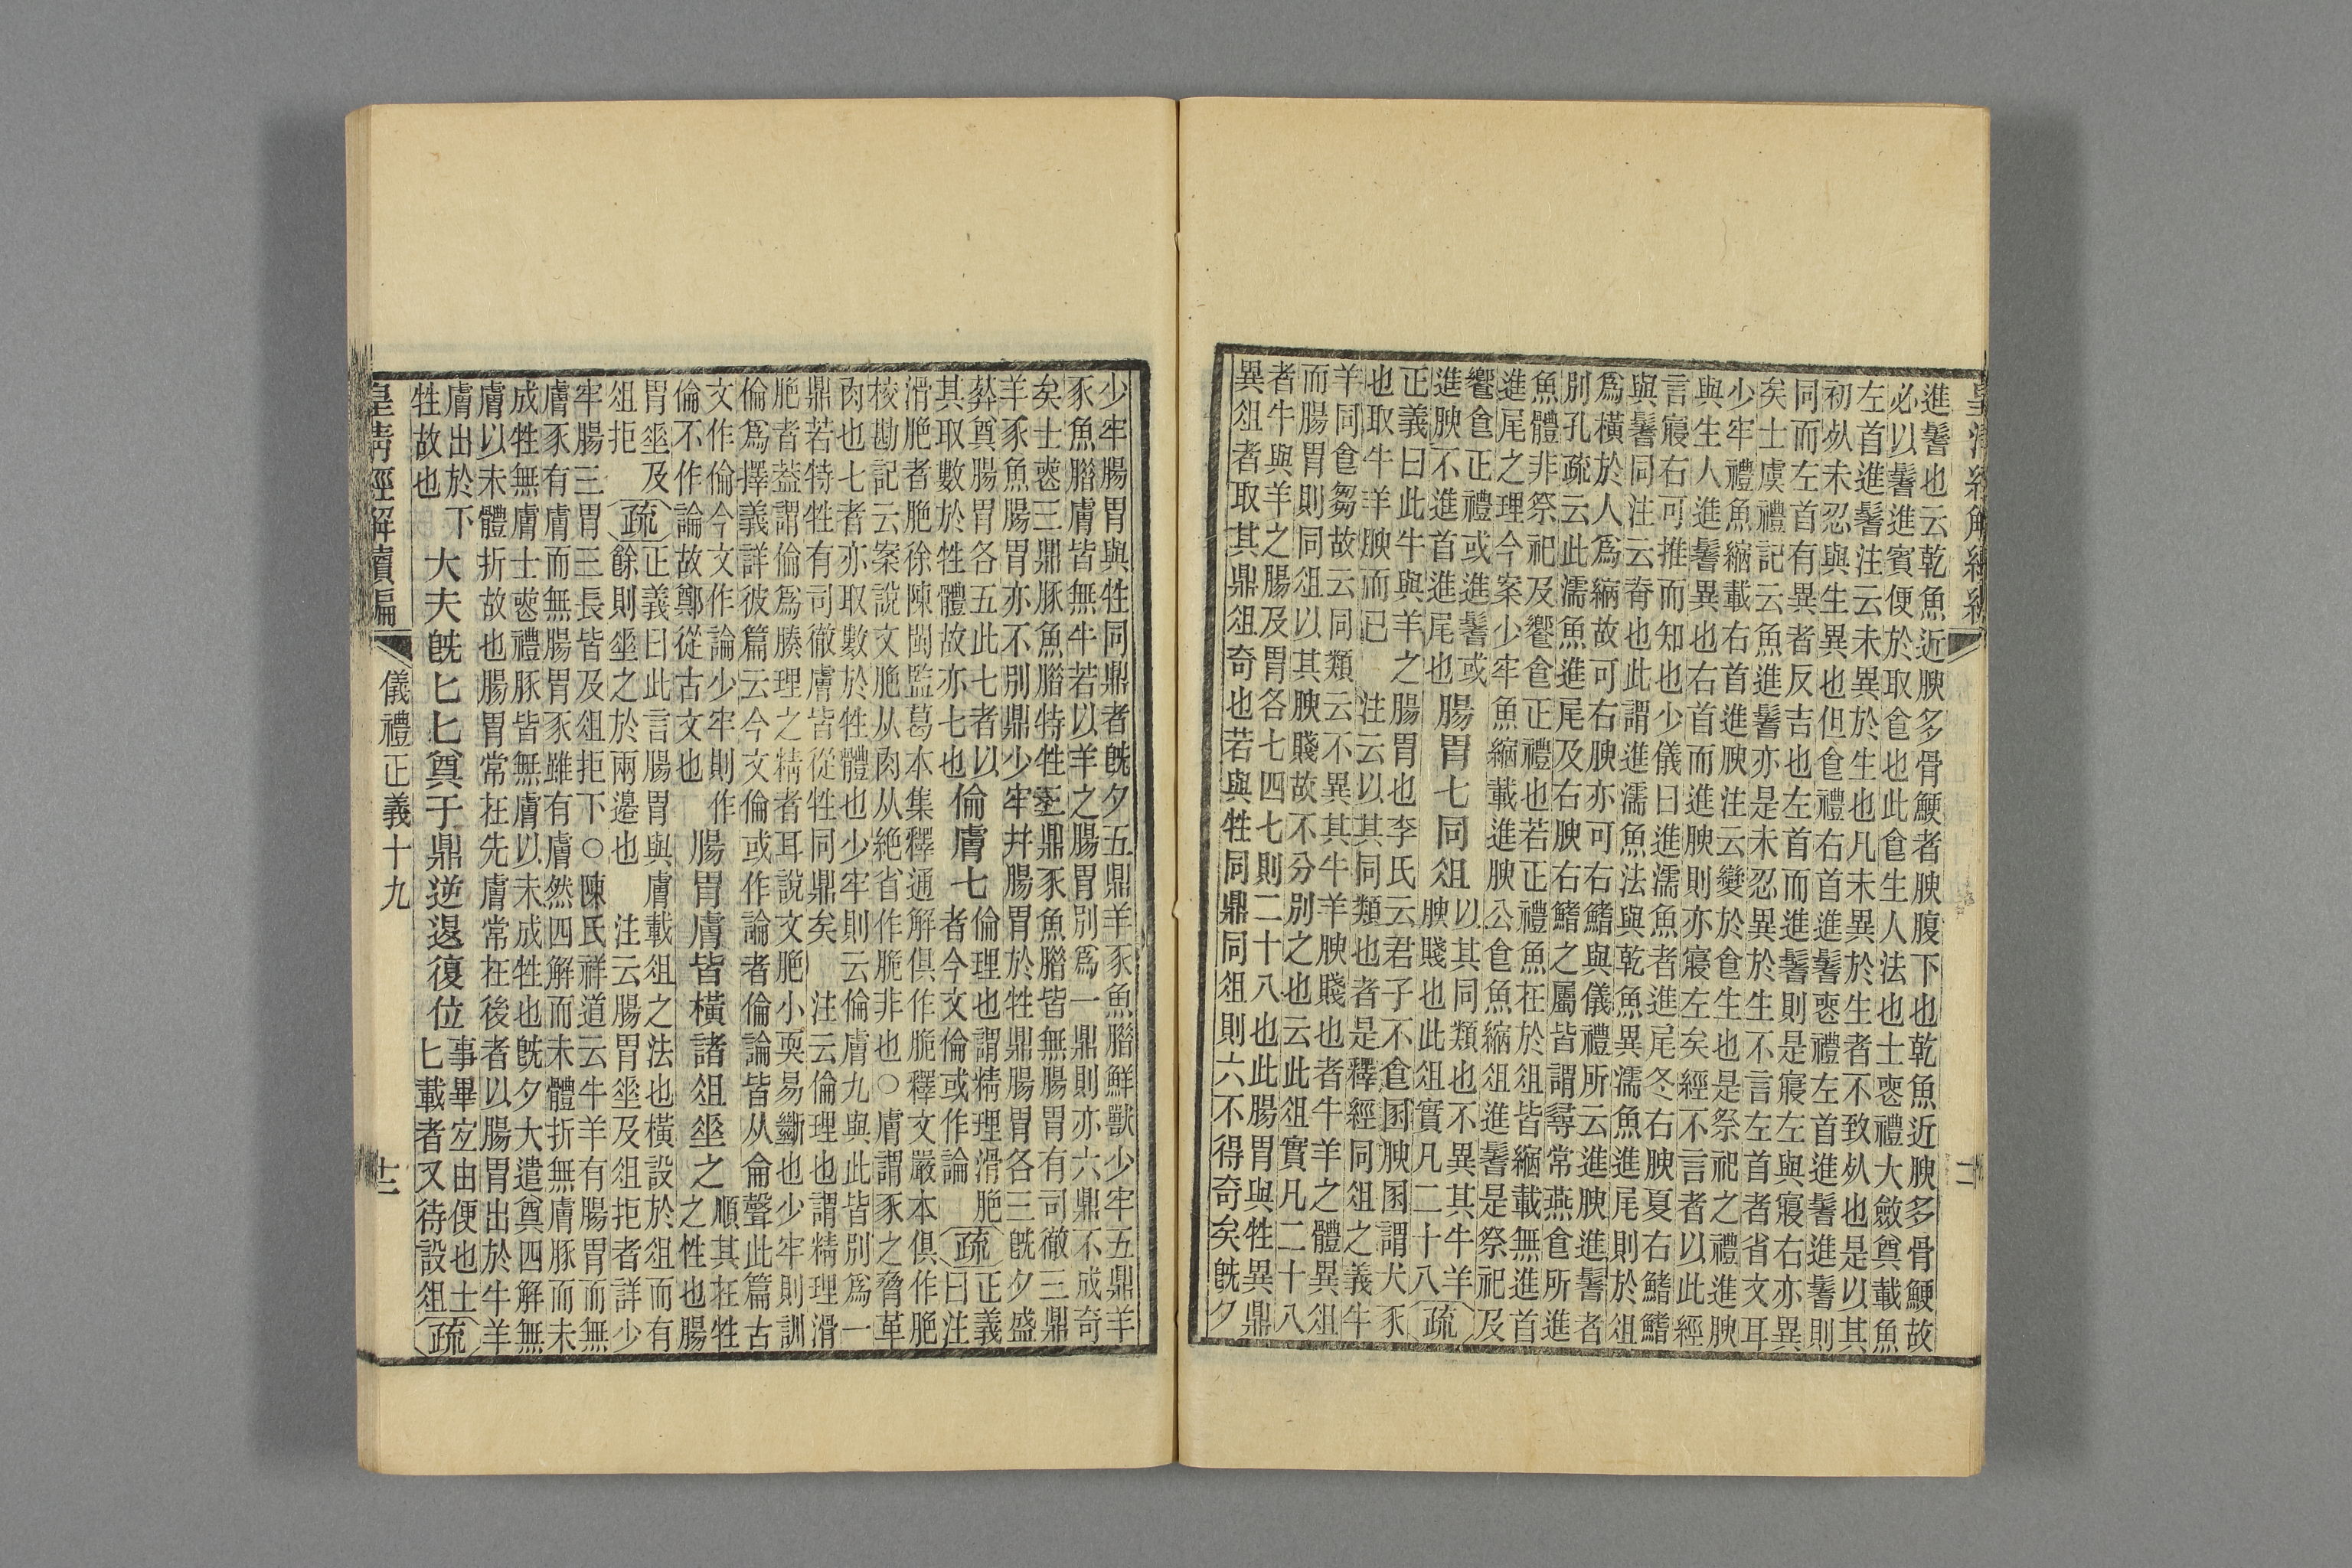 進鬐也云乾魚近腴多骨鯁者腴腹下也乾魚近腴多骨鯁故
必以鬐進賓便於取食也此食生人法也士喪禮大斂奠載魚
左首進鬐注云未異於生也凡未異於生者不致死也是以其
初死未忍與生異也但食禮右首進鬐喪禮左首進鬐進鬐則
同而左首有異者反吉也左首而進鬐則是寢左與寢右亦異
矣士虞禮記云魚進鬐亦是未忍異於生不言左首者省文耳
少牢禮魚縮載右首進腴注云變於食生也是祭祀之禮進腴
與生人進鬐異也右首而進腴則亦寢左矣經不言者以此經
言寢右可推而知也少儀曰進濡魚者進尾冬右腴夏右鰭鰭
與鬐同注云脊也此謂進濡魚法與乾魚異濡魚進尾則於俎
為橫於人為縮故可右腴亦可右鰭與儀禮所云進腴進鬐者
別孔疏云此濡魚進尾及右腴右鰭之屬皆謂尋常燕食所進
魚體非祭祀及饗食正禮也若正禮魚在於俎皆縮載無進首
進尾之理今案少牢魚縮載進腴公食魚縮俎進鬐是祭祀及
饗食正禮或進鬐或
進腴不進首進尾也
腸胃七同俎
以其同類也不異其牛羊
腴賤也此俎實凡二十八
疏
正義曰此牛與羊之腸胃也李氏云君子不食圂腴圂謂犬豕
也取牛羊腴而已　注云以其同類也者是釋經同俎之義牛
羊同食芻故云同類云不異其牛羊腴賤也者牛羊之體異俎
而腸胃則同俎以其腴賤故不分別之也云此俎實凡二十八
者牛與羊之腸及胃各七四七則二十八也此腸胃與牲異鼎
異俎者取其鼎俎奇也若與牲同鼎同俎則六不得奇矣旣夕
皇清經解續編
二
少牢腸胃與牲同鼎者旣夕五鼎羊豕魚腊鮮獸少牢五鼎羊
豕魚腊膚皆無牛若以羊之腸胃別為一鼎則亦六鼎不成奇
矣士喪三鼎豚魚腊特牲三鼎豕魚腊皆無腸胃有司徹三鼎
羊豕魚腸胃亦不別鼎少牢幷腸胃於牲鼎腸胃各三旣夕盛
葬奠腸胃各五此七者以
其取數於牲體故亦七也
倫膚七
倫理也謂精理滑脃
者今文倫或作論
疏
正義
曰注
滑脃者脃徐陳閩監葛本集釋通解俱作脆釋文嚴本俱作脃
校勘記云案說文脃从肉从絶省作脆非也○膚謂豕之脅革
肉也七者亦取數於牲體也少牢則云倫膚九與此皆別為一
鼎若特牲有司徹膚皆從牲同鼎矣　注云倫理也謂精理滑
脃者葢謂倫為腠理之精者耳說文脃小耎易斷也少牢則訓
倫為擇義詳彼篇云今文倫或作論者倫論皆从侖聲此篇古
文作倫今文作論少牢則作
倫不作論故鄭從古文也
腸胃膚皆橫諸俎垂之
順其在牲
之性也腸
胃垂及
俎拒
疏
正義曰此言腸胃與膚載俎之法也橫設於俎而有
餘則垂之於兩邊也　注云腸胃垂及俎拒者詳少
牢腸三胃三長皆及俎拒下○陳氏祥道云牛羊有腸胃而無
膚豕有膚而無腸胃豕雖有膚然四解而未體折無膚豚而未
成牲無膚士喪禮豚皆無膚以未成牲也旣夕大遣奠四解無
膚以未體折故也腸胃常在先膚常在後者以腸胃出於牛羊
膚出於下
牲故也
大夫旣匕匕奠于鼎逆退復位
事畢宜由便也士
匕載者又待設俎
疏
皇清經解續編
儀禮正義十九
十二